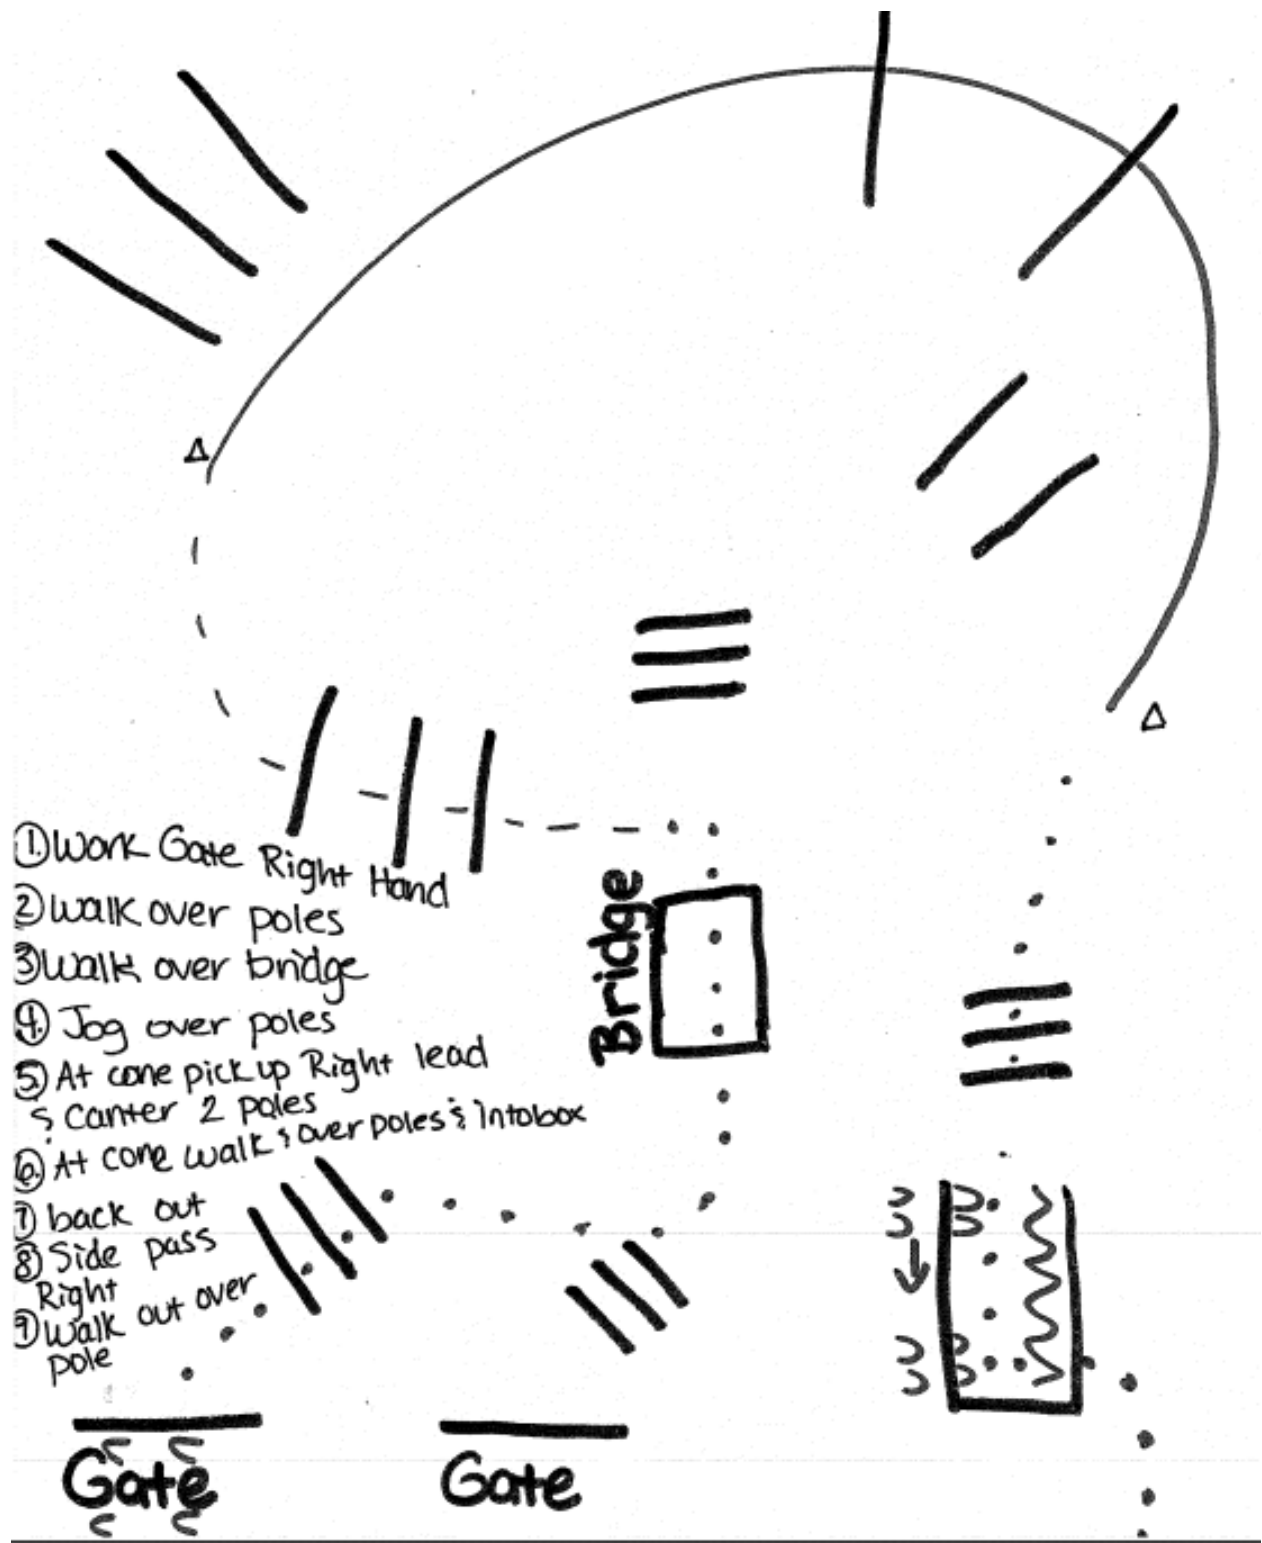 ① Work Gate Right Hand
② Walk over poles
③ Walk over bridge
④ Jog over poles
⑤ At cone pick up Right lead
& Canter 2 poles
⑥ At cone walk & over poles & into box
⑦ back out
⑧ Side pass
Right
⑨ Walk out over
pole
Bridge
Gate
Gate